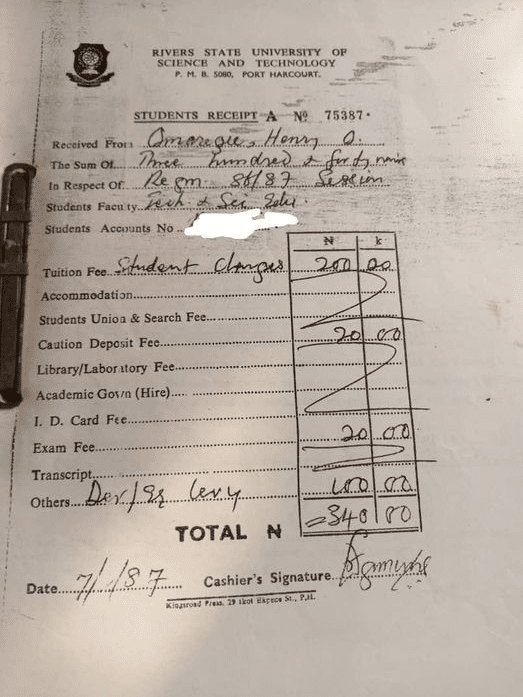 RIVERS STATE UNIVERSITY OF
SCIENCE AND TECHNOLOGY
P. M. B. 5080, PORT HARCOURT.
STUDENTS RECEIPT A Nº 75387
Received From Omoregie, Henry O.
The Sum Of.... Three hundred & forty naira
In Respect Of Regm. 86/87 Session
Students Faculty Tech. & Sci. Edu.
Students Accounts No ..
₦ k
Tuition Fee Student Charges 200 00
Accommodation
Students Union & Search Fee
Caution Deposit Fee 20 00
Library/Laboratory Fee
Academic Gown (Hire)
I. D. Card Fee
Exam Fee 20 00
Transcript
Others Dev/ levy 100 00
TOTAL ₦ =340 00
Date 7/1/87 Cashier's Signature
Kingsroad Press, 29 Ikot Ekpene St., P.H.